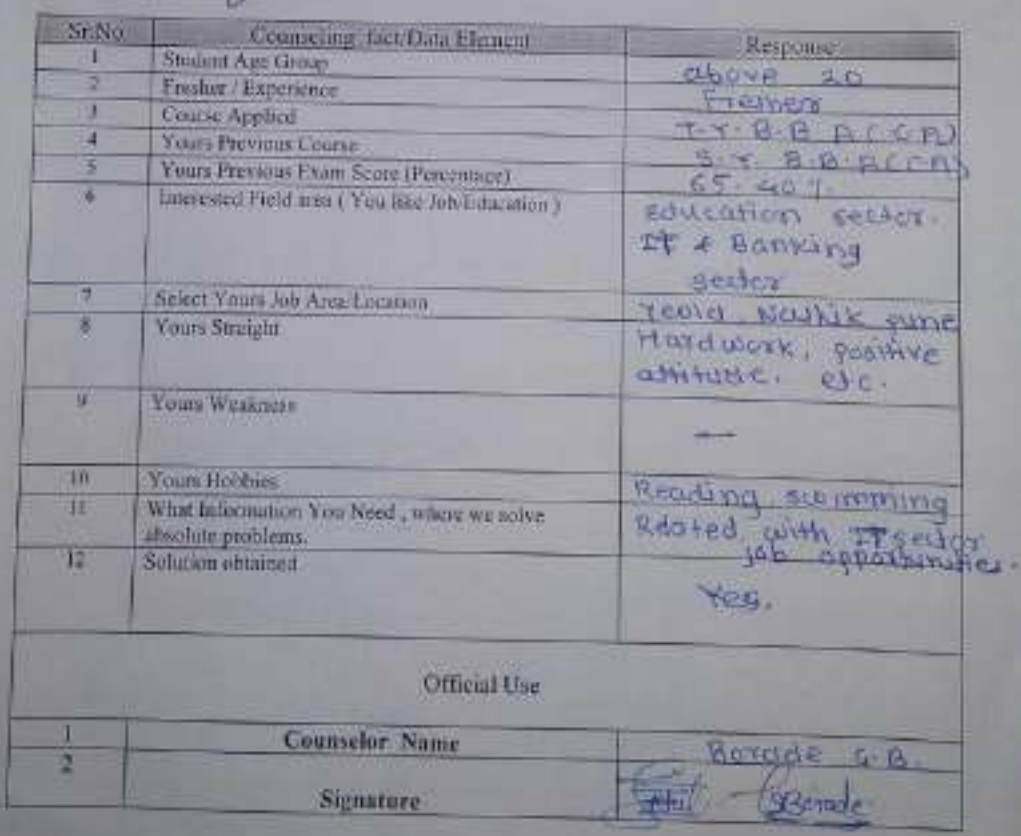 Sr.No Counseling fact/Data Element Response
1 Student Age Group above 20
2 Fresher / Experience Freshers
3 Course Applied T.Y.B.B.A(CA)
4 Yours Previous Course S.Y.B.B.A(CA)
5 Yours Previous Exam Score (Percentage) 65.40%
6 Interested Field area ( You like Job/Education ) education sector.
IT & Banking
sector
7 Select Yours Job Area/Location Yeola, Nashik pune
8 Yours Straight Hardwork, positive
attitude. etc.
9 Yours Weakness —
10 Yours Hobbies Reading swimming
11 What Information You Need , where we solve Related with IT sector
absolute problems. job opportunities.
12 Solution obtained
Yes.
Official Use
1 Counselor Name Borade G.B.
2
Signature Borade